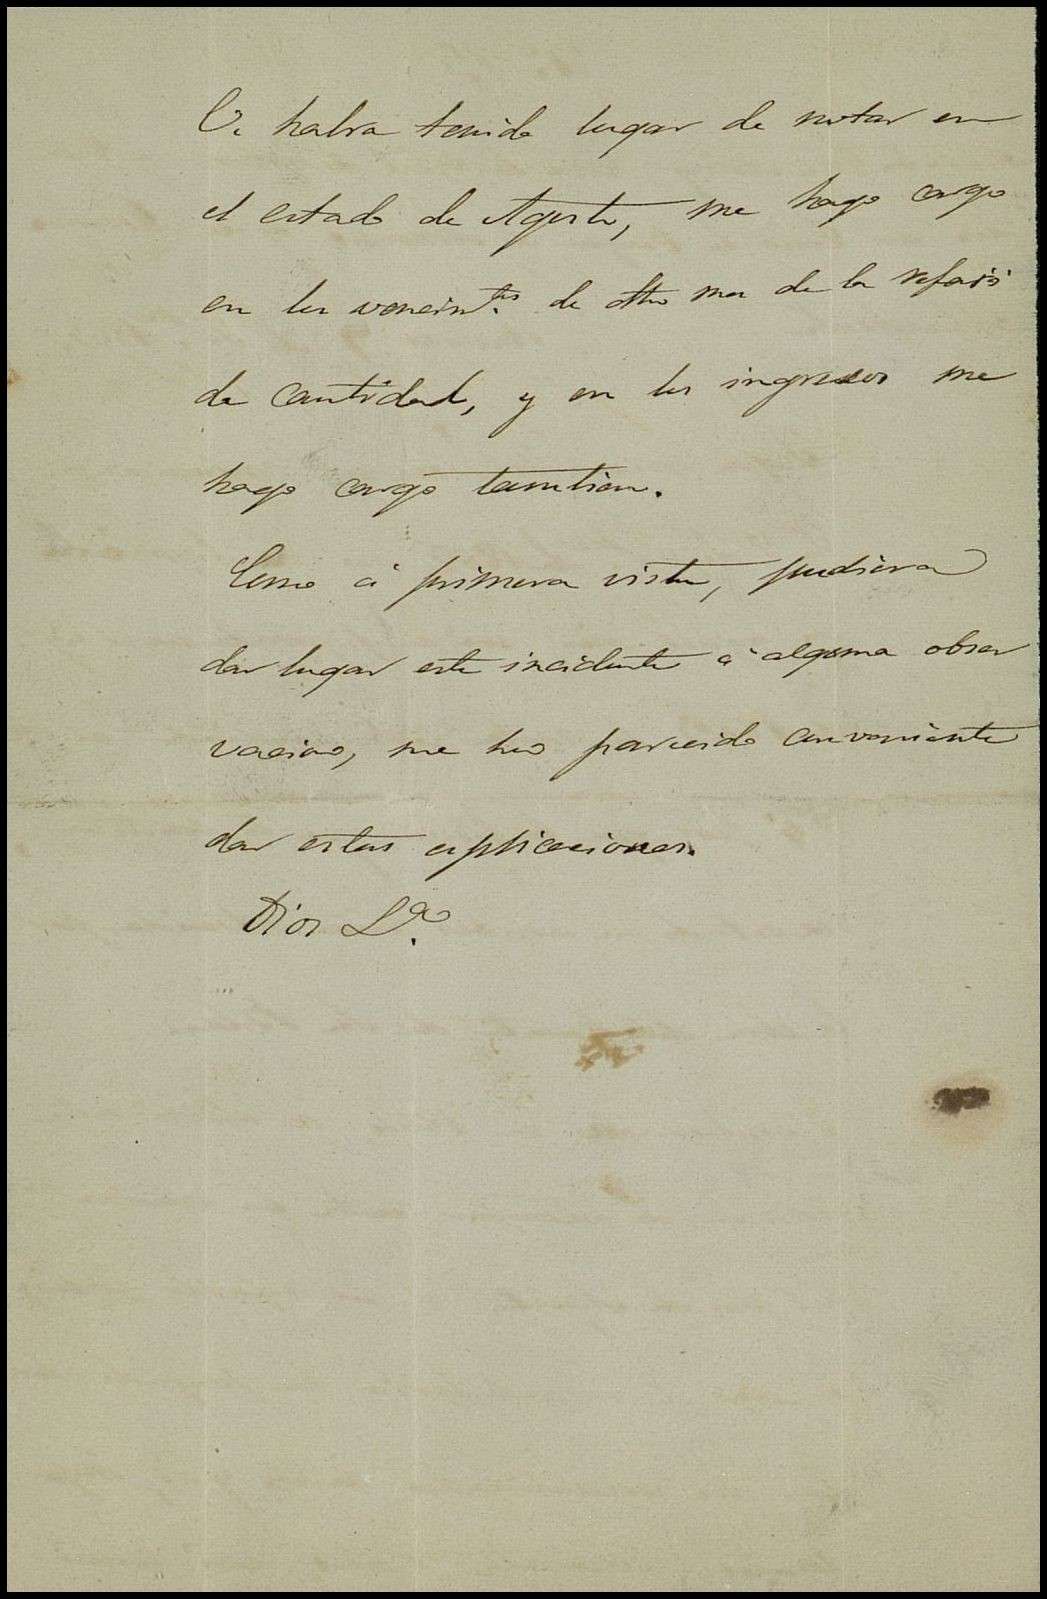 V. habra tenido lugar de notar en
el estado de Agosto, me hago cargo
en los vencim.tos de dho mes de la
de cantidad, y en los ingresos me
hago cargo tambien.
Como á primera vista, pudiera
dar lugar este incidente á alguna obser
vacion, me ha parecido conveniente
dar estas esplicaciones.
Dios